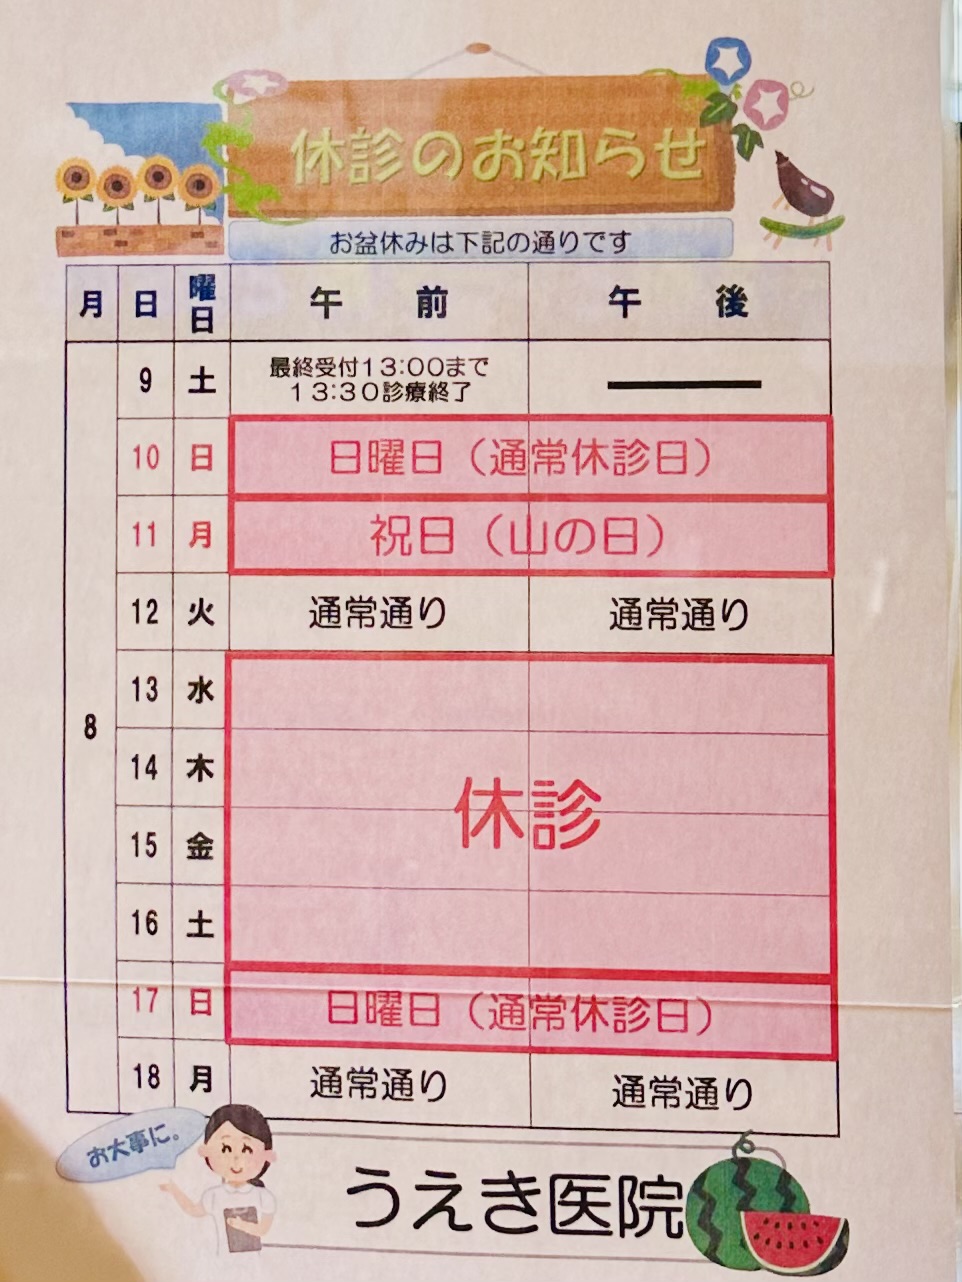 休診のお知らせ
お盆休みは下記の通りです
月 日 曜日 午前 午後
8
9 土 最終受付13:00まで
13:30診療終了
10 日 日曜日（通常休診日）
11 月 祝日（山の日）
12 火 通常通り 通常通り
13 水
14 木
休診
15 金
16 土
17 日 日曜日（通常休診日）
18 月 通常通り 通常通り
お大事に。
うえき医院